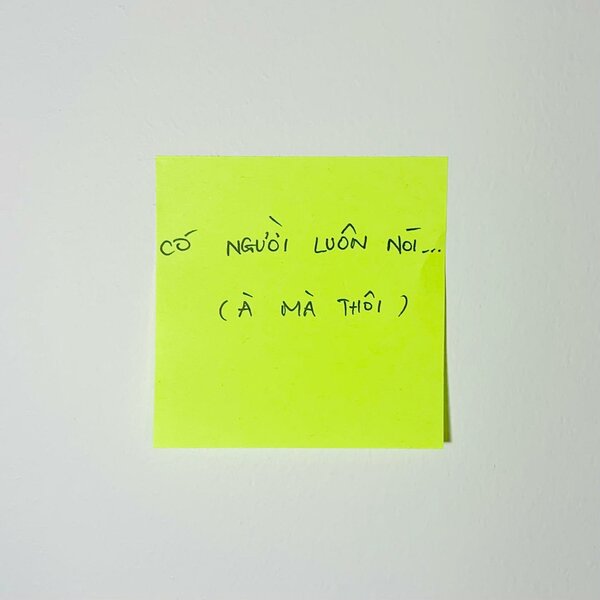 CÓ NGƯỜI LUÔN NÓI...
(À MÀ THÔI)